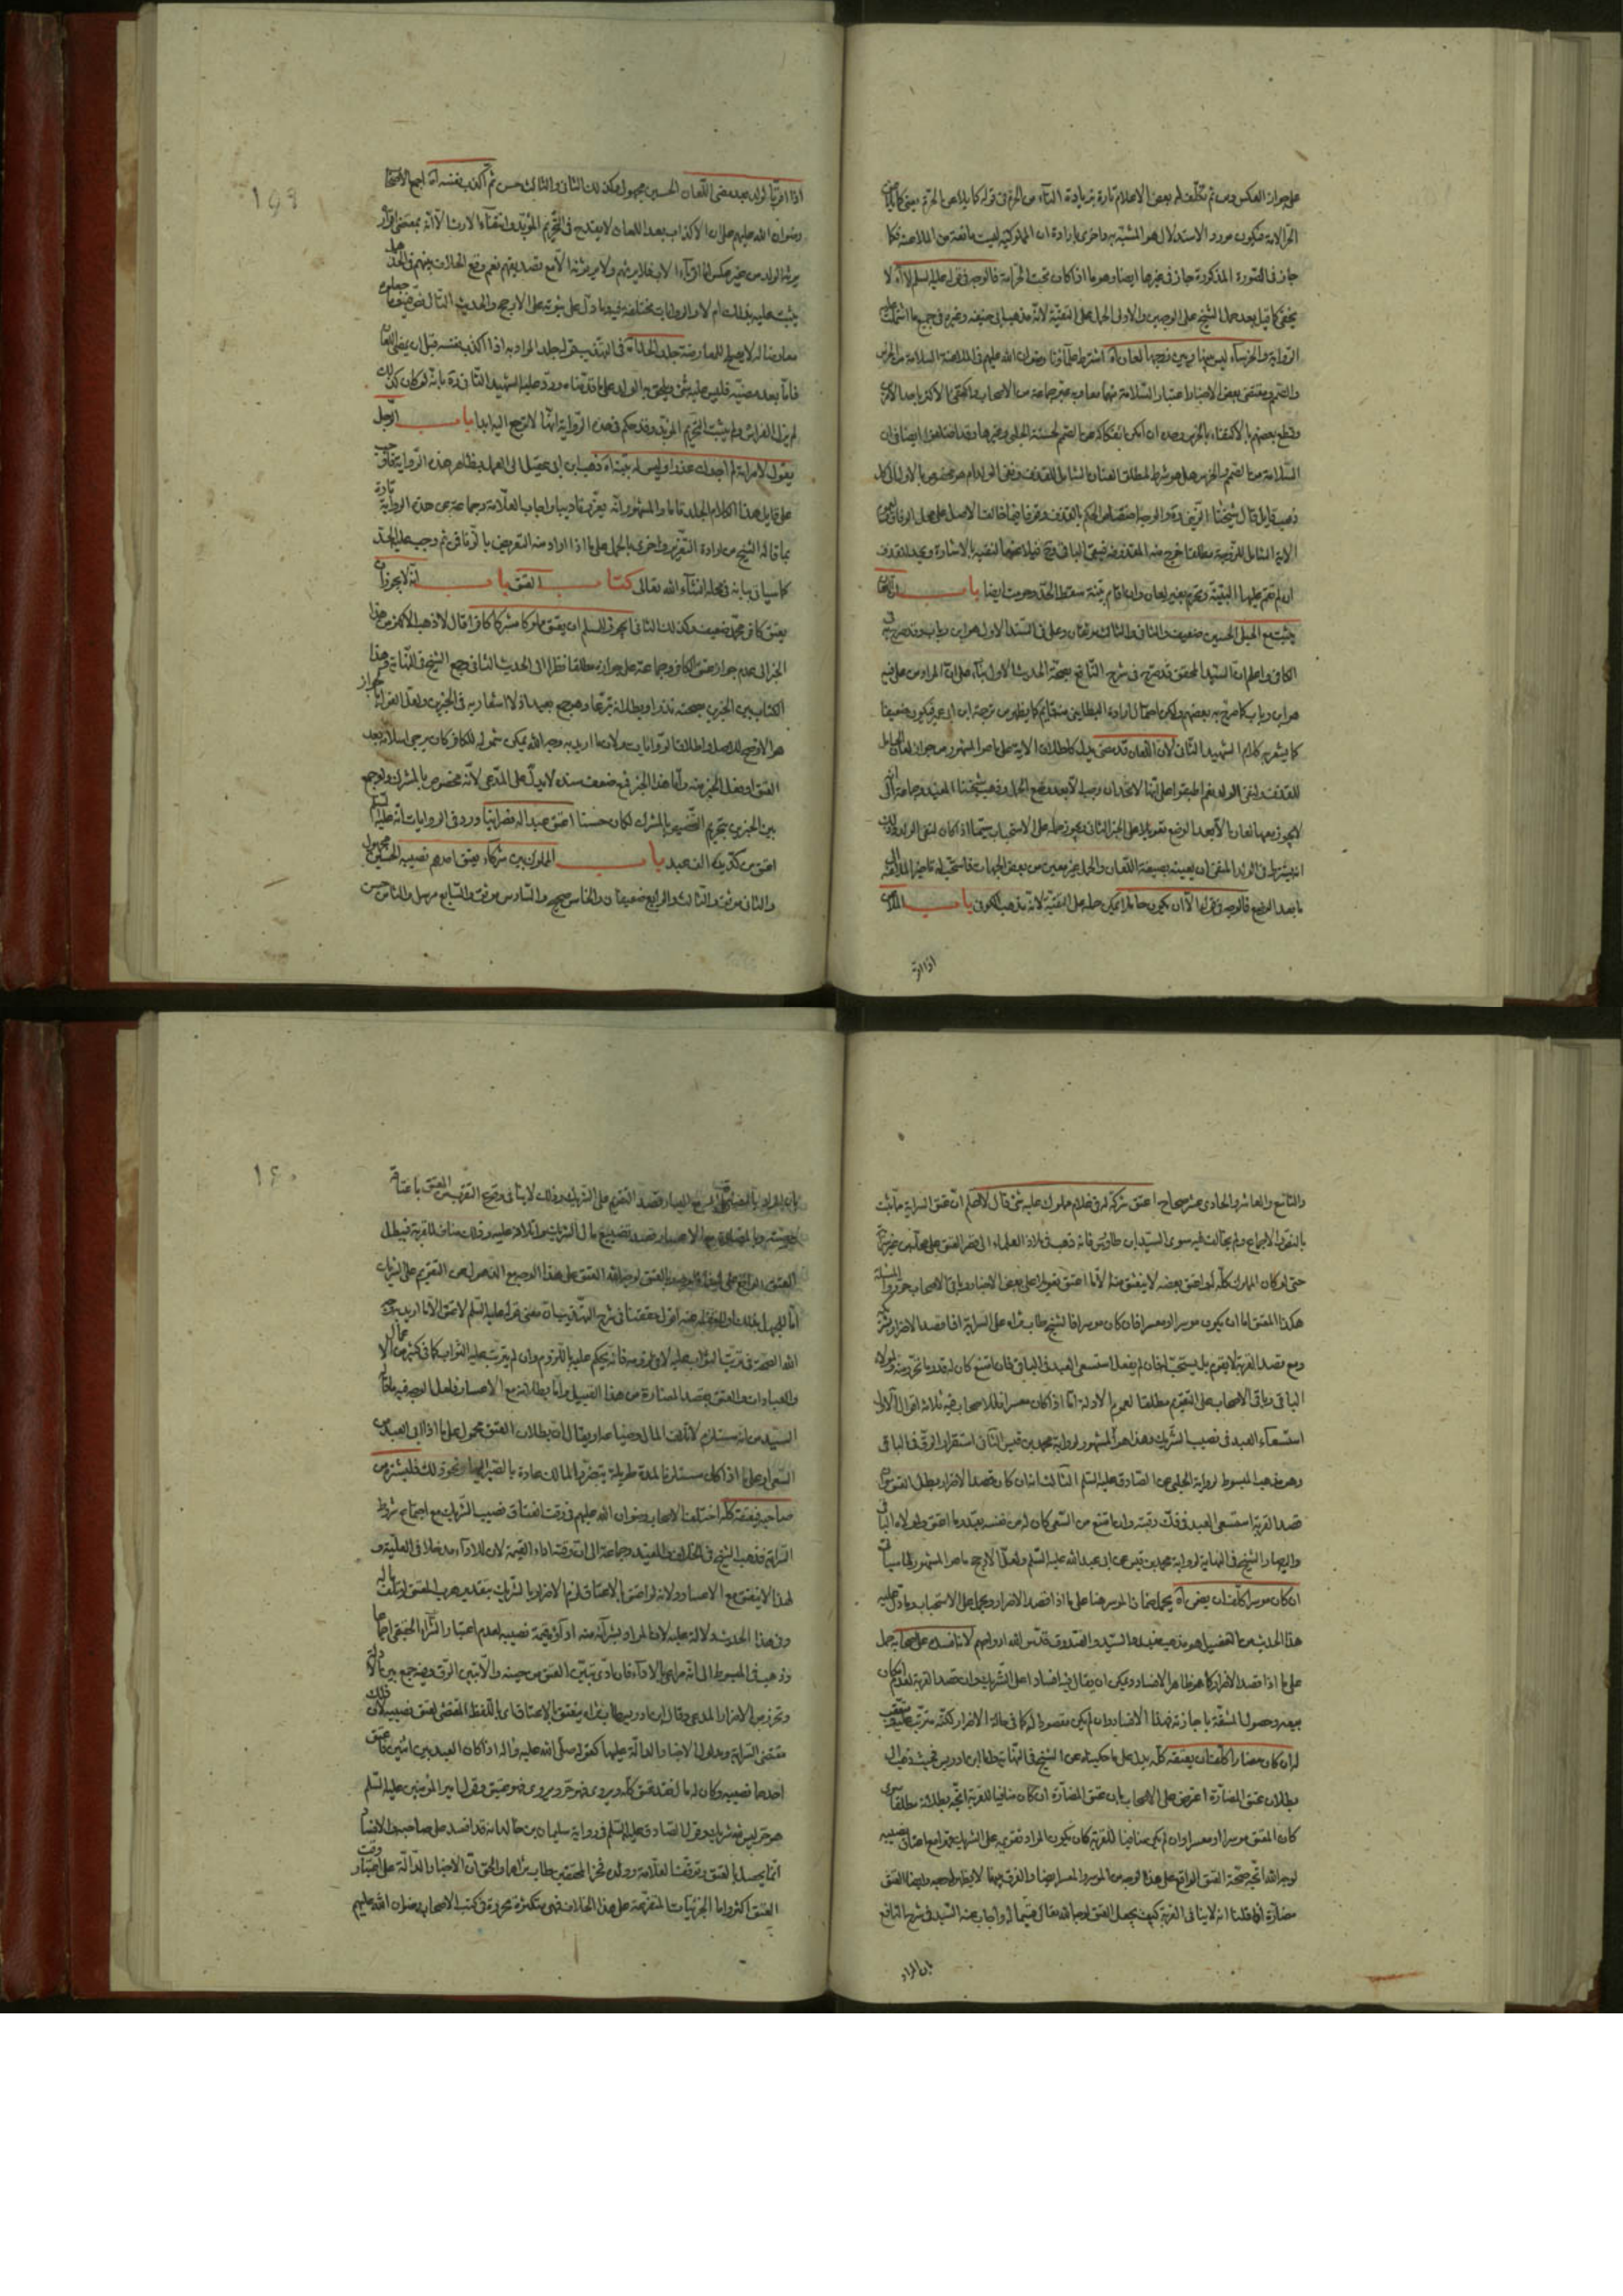 على جواز العكس ومن ثم تكلف له بعض الاعلام تارة بزيادة التاء من الحرة في قوله كما يلاعن الحرة
الحر الامة فيكون مورد الاستدلال هو المشبه به واخرى بارادة ان المملوكية ليست مانعة من الملاعنة فكما
جاز في الصورة المذكورة جاز في غيرها ايضا وهو ما اذا كان تحت الحر امة فالوجه في قوله عليه السلم لا انه لا
يخفى ما قيل بعد حمل الشيخ على الوجهين والاولى الحمل على التقية لانه مذهب ابي حنيفه وغيره في جميع ما اشتملت
الرواية والخرساء ليس بينها وبين زوجها لعان اه اشترط علماؤنا رضوان الله عليهم في الملاعنة السلامة من الخرس
والصمم ومقتضى بعض الاخبار اعتبار السلامة منهما معا وبه عبر جماعة من الاصحاب واكتفى الاكثر باحد الامرين
وقطع بعضهم بالاكتفاء بالخرس وحده ان امكن انفكاكه عن الصمم لحسنة الحلبي وغيرها وقد اختلفوا ايضا في ان
السلامة من الصمم والخرس هل هو شرط لمطلق اللعان الشامل للقذف ونفي الولد ام هو مخصوص بالاول الى كل
ذهب قائل قال شيخنا
الاية الشامل للزوجية مطلقا خرج منه القذف فيبقى الباقي
ان لم تقم عليها البينة وتحرم بغير لعان وان اقام بينة سقط الحد وحرمت ايضا باب ان اللعان
يثبت مع الحبلى الحسين ضعيف والثاني والثالث موثقان وعلي في السند الاول هو ابن رياب وقد صرح به في
الكافي واعلم ان السيد المحقق قد صرح في شرح النافع بصحة الحديث الاول بناء على ان المراد من علي فيه
هو ابن رياب كما صرح به بعضهم ولكن احتمال ارادة البطايني منه قايم كما يظهر من ترجمة ابن ابي عمير فيكون ضعيفا
كما يشعر به كلام الشهيد الثاني لان اللعان قد مضى يدل كاطلاق الاية على ما هو المشهور من جواز لعان الحامل
للقذف ولنفي الولد نعم اطبقوا على انها لا تحد ان وجب الا بعد وضع الحمل وذهب شيخنا المفيد وجماعة الى انه
لا يجوز بينهما لعان الا بعد الوضع تعويلا على الخبر الثاني ويجوز حمله على الاستحباب سيما اذا كان لنفي الولد
اذ يشترط في الولد المنفي ان يعينه بصيغة اللعان والحمل غير معين من بعض الجهات فاستحب له تاخير الملاعنة الى
ما بعد الوضع فالوجه في قوله الا ان يكون حاملا يمكن حمله على التقية لانه مذهب الكوفي باب الملاعن
اذا اقر
اذا اقر بالولد بعد مضى اللعان الحسين مجهول وكذلك الثاني والثالث حسن ثم اكذب نفسه اه اجمع الاصحاب
رضوان الله عليهم على ان الاكذاب بعد اللعان لا يقدح في التحريم المؤبد وانتفاء الارث الا انه بمقتضى اقراره
يرثه الولد من غير عكس اما اقرباء الاب فلا يرثهم ولا يرثونه الا مع تصديقهم نعم وقع الخلاف بينهم في الحد هل
يثبت عليه بذلك ام لا والروايات مختلفة فيه وما دل على ثبوته على الارجح والحديث الثالث ضعيف
معارضا له لا يصلح للمعارضة جلد الحد اه في التهذيب قوله جلد المراد به اذا اكذب نفسه قبل ان يمضي اللعان
فاما بعد مضيه فليس عليه شئ ويلحق به الولد على ما قدمناه ورد عليه الشهيد الثاني قده بانه لو كان كذلك
لم يزل الفراش ولم يثبت التحريم المؤبد وقد حكم في هذه الرواية انها لا ترجع اليه ابدا باب الرجل
يقول لامراته لم اجدك عذراء وليس له بينة اه ذهب ابن ابي عقيل الى العمل بظاهر هذه الرواية
على قايل هذا الكلام الجلد تاما والمشهور انه يعزر تاديبا واجاب العلامة وجماعة عن هذه الرواية تارة
بما قاله الشيخ من ارادة التعزير واخرى بالحمل على ما اذا اراد منه التعريض بالزنا في ثم وجب عليه الحد
كما سياتي بيانه في محله انشاء الله تعالى كتاب العتق باب انه لا يجوز ان
يعتق كافر محمد ضعيف وكذلك الثاني ايجوز للمسلم ان يعتق مملوكا مشركا كافرا قال لا ذهب الاكثر من هذا
الخبر الى عدم جواز عتق الكافر وجماعة على جوازه مطلقا نظرا الى الحديث الثاني وجمع الشيخ في النهاية وهذا
الكتاب بين الخبرين بصحته نذرا وبطلانه تبرعا وهو جمع بعيد اذ لا اشعار به في الخبرين ولعل القول بالجواز
هو الارجح للاصل واطلاق الروايات ولان ما اريد به وجه الله يمكن شموله للكافر كان يرجى اسلامه بعد
العتق او يفعل الخير منه واما هذا الخبر فمع ضعف سنده لا يدل على المدعى لانه مخصوص بالمشرك ولو جمع
بين الخبرين بتحريم التخصيص بالمشرك لكان حسنا اعتق عبدا له نصرانيا ورد في الروايات انه عليه السلم
اعتق من كد يده الف عبد باب المملوك بين شركاء يعتق احدهم نصيبه الحسين مجهول
والثاني موثق والثالث والرابع ضعيفان والخامس صحيح والسادس موثق والسابع مرسل والثامن حسن
والتاسع والعاشر والحادي عشر صحاح اعتق شركة له في غلام مملوك عليه شئ قال لا اعلم ان عتق السراية ما ثبت
بالنص والاجماع ولم يخالف فيه سوى السيد ابن طاووس فانه ذهب في ملاذ العلماء الى قصر العتق على محله من غير سراية
حتى لو كان المملوك كله له واعتق بعضه لا ينعتق منه الا ما اعتق تعويلا على بعض الاخبار وباقي الاصحاب حرروا المسئلة
هكذا المعتق اما ان يكون موسرا او معسرا فان كان موسرا فالشيخ طاب ثراه على السراية اذا قصد الاضرار
ومع قصد القربة لا يقوم بل يستحب له فان لم يفعل استسعى العبد في الباقي فان امتنع كان له بقدر ما تحرر منه ولمولاه
الباقي وباقي الاصحاب على التقويم مطلقا لعموم الادلة اما اذا كان معسرا فللاصحاب فيه ثلاثة اقوال الاول
استسعاء العبد في نصيب الشريك وهذا هو المشهور لرواية محمد بن قيس الثاني استقرار الرق في الباقي
وهو مذهب المبسوط لرواية الحلبي عن الصادق عليه السلم الثالث انه ان كان قصد الاضرار بطل العتق وان
قصد القربة استسعى العبد في فك رقبته وان امتنع من السعي كان له من نفسه بقدر ما اعتق ولمولاه الباقي
واليه صار الشيخ في النهاية لرواية محمد بن قيس عن ابي عبد الله عليه السلم ولعل الارجح ما هو المشهور لما سياتي
ان كان موسرا كلف ان يضمن اه يحمل ضمان الموسر هنا على ما اذا قصد الاضرار ويحمل على الاستحباب وما دل عليه
هذا الحديث من التفصيل هو مذهب المفيد والسيد والصدوق قدس الله ارواحهم لانه افسده على صاحبه حمل
على ما اذا قصد الاضرار كما هو ظاهر الافساد ويمكن ان يقال فيه افسادا على الشريك وان قصد القربة لعدم امكان
بيعه وحصول المشقة باجازته فهذا الافساد وان لم يكن مقصودا له كما في حالة الاضرار لكنه مترتب عليه
ان كان مضارا كلف ان يعتقه كله يدل على ما حكيناه عن الشيخ في النهاية وقال ابن ادريس
بطلان عتق المضارة اعترض على الاصحاب بان عتق المضارة ان كان منافيا للقربة اتجه بطلانه مطلقا سواء
كان المعتق موسرا او معسرا وان لم يكن منافيا للقربة كان يكون المراد تقويمه على الشريك مع اعتاق نصيبه
لوجه الله اتجه صحة العتق الواقع على هذا الوجه من الموسر والمعسر ايضا والفرق بينهما لا يظهر له وجه وايضا العتق
مضارة اذا قلنا انه لا ينافي القربة كيف يجعل العتق لوجه الله تعالى قسيما له واجاب عنه السيد في شرح النافع
بان المراد
بان المراد بالمضارة
العتق
اما للجهل بذلك او للغفلة عنه اقول حققنا في شرح التهذيب ان معنى قوله عليه السلم لا عتق الا ما اريد به وجه
الله الصحة في ترتب الثواب عليه لا في لزومه فانه يحكم عليه باللزوم وان لم يترتب عليه الثواب كما في كثير من الاعمال
والعبادات والعتق بقصد المضارة من هذا القبيل واما بطلانه مع الاعسار فلعل الوجه فيه ما قاله
السيد من انه مستلزم لاتلاف المال وضياعه او يقال ان بطلان العتق محمول على ما اذا ابى العبد من
السعي او على ما اذا كان مستلزما لمدة طويلة يتضرر المالك عادة بالصبر اليها ونحو ذلك فليشتره من
صاحبه فيعتقه كله اختلف الاصحاب رضوان الله عليهم في وقت انعتاق نصيب الشريك مع اجتماع شروط
السراية فذهب الشيخ في الخلاف والمفيد وجماعة الى ان وقته اداء القيمة لان للاداء مدخلا في العلية و
لهذا لا ينعتق مع الاعسار ولانه لو اعتق بالاعتاق لزم الاضرار بالشريك بتقدير هرب المعتق او تلف ماله
وفي هذا الحديث دلالة عليه لان المراد بشرائه منه اداؤه قيمة نصيبه لعدم اعتبار الشراء الحقيقي اجماعا
وذهب في المبسوط الى انه مراعى بالاداء فان ادى تبين العتق من حينه والا تبين الرق وفيه جمع بين الادلة
وتحرز من الاضرار المدعى وقال ابن ادريس طاب ثراه ينعتق بالاعتاق اي باللفظ المقتضي لعتق نصيبه لان ذلك
مقتضى السراية ومدلول الاخبار الدالة عليها كقوله صلى الله عليه واله اذا كان العبد بين اثنين فاعتق
احدهما نصيبه وكان له مال فقد عتق كله ويروى فهو حر ويروى فهو عتيق وقول امير المؤمنين عليه السلم
هو حر ليس فيه شريك وقول الصادق عليه السلم في رواية سليمان بن خالد انه قد افسد على صاحبه والافساد
انما يحصل بالعتق وتوقف العلامة وولده فخر المحققين طاب ثراهما والحق ان الاخبار الدالة على اعتبار وقت
العتق اكثر واما الجزئيات المتفرعة على هذا الخلاف فهي متكثرة محررة في كتب الاصحاب رضوان الله عليهم